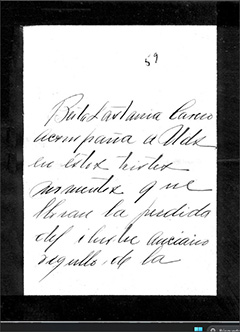 59
acompaña a Uds
en estos tristes
momentos que
lloran la perdida
del ilustre anciano
orgullo de la